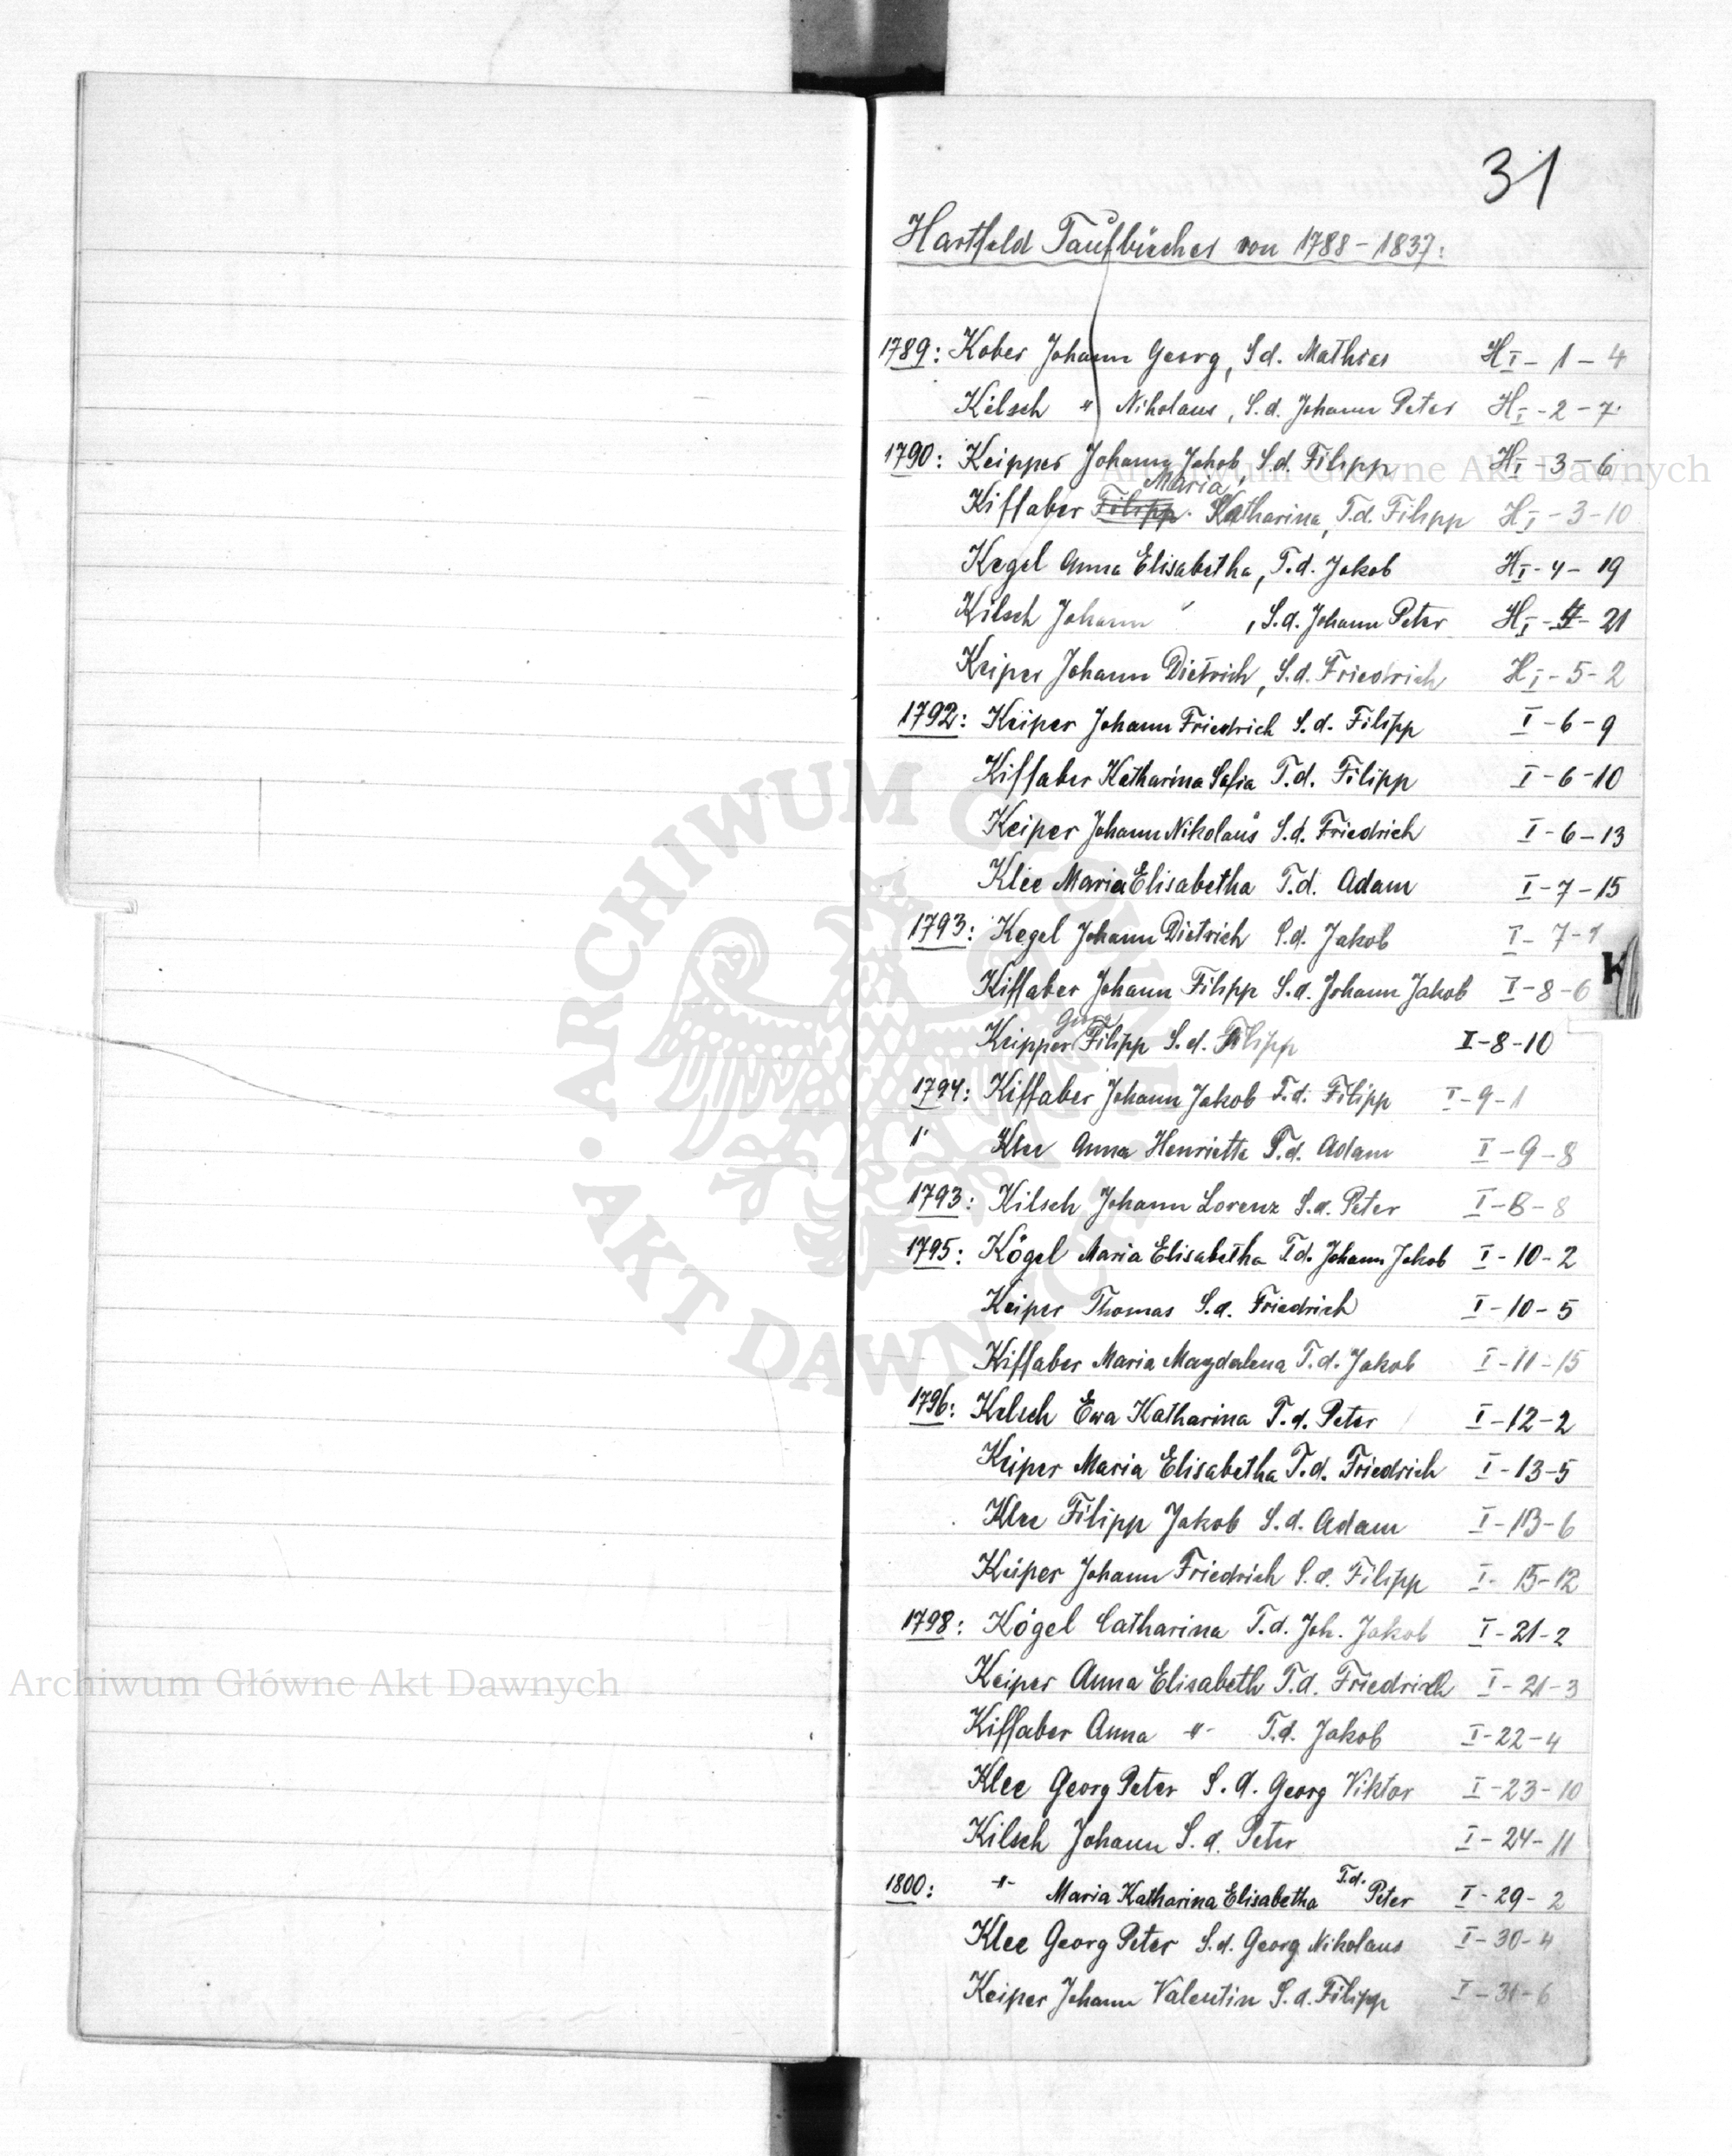 31
Hartfeld Taufbücher von 1788-1837:
1789: Kober Johann Georg, S.d. Mathias H I - 1 - 4
Kilsch " Nikolaus, S.d. Johann Peter H I - 2 - 7
1790: Keipper Johann Jakob, S.d. Filipp H I - 3 - 6
Maria
Kiffaber Filipp. Katharina, T.d. Filipp H I - 3 - 10
Kegel Anna Elisabetha, T.d. Jakob H I - 4 - 19
Kilsch Johann , S.d. Johann Peter H I - 4 - 21
Keiper Johann Dietrich, S.d. Friedrich H I - 5 - 2
1792: Keiper Johann Friedrich S.d. Filipp I - 6 - 9
Kiffaber Katharina Sofia T.d. Filipp I - 6 - 10
Keiper Johann Nikolaus S.d. Friedrich I - 6 - 13
Klee Maria Elisabetha T.d. Adam I - 7 - 15
1793: Kegel Johann Dietrich S.d. Jakob I - 7 - 1
K
Kiffaber Johann Filipp S.d. Johann Jakob I - 8 - 6
Georg
Keipper Filipp S.d. Filipp I - 8 - 10
1794: Kiffaber Johann Jakob T.d. Filipp I - 9 - 1
" Klee Anna Henrietta T.d. Adam I - 9 - 8
1793: Kilsch Johann Lorenz S.d. Peter I - 8 - 8
1795: Kögel Maria Elisabetha T.d. Johann Jakob I - 10 - 2
Keiper Thomas S.d. Friedrich I - 10 - 5
Kiffaber Maria Magdalena T.d. Jakob I - 11 - 15
1796: Kelsch Ewa Katharina T.d. Peter I - 12 - 2
Keiper Maria Elisabetha T.d. Friedrich I - 13 - 5
Klee Filipp Jakob S.d. Adam I - 13 - 6
Keiper Johann Friedrich S.d. Filipp I - 15 - 12
1798: Kögel Catharina T.d. Joh. Jakob I - 21 - 2
Keiper Anna Elisabeth T.d. Friedrich I - 21 - 3
Kiffaber Anna -"- T.d. Jakob I - 22 - 4
Klee Georg Peter S.d. Georg Viktor I - 23 - 10
Kilsch Johann S.d. Peter I - 24 - 11
1800: -"- Maria Katharina Elisabetha T.d. Peter I - 29 - 2
Klee Georg Peter S.d. Georg Nikolaus I - 30 - 4
Keiper Johann Valentin S.d. Filipp I - 31 - 6
Archiwum Główne Akt Dawnych
Archiwum Główne Akt Dawnych
ARCHIWUM GŁÓWNE AKT DAWNYCH